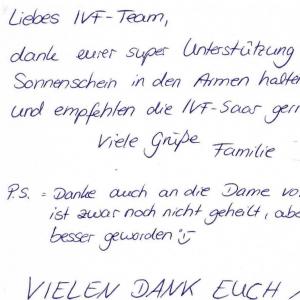 Liebes IVF-Team,
dank eurer super Unterstützung
Sonnenschein in den Armen halten
und empfehlen die IVF-Saar
Viele Grüße
Familie
P.S. = Danke auch an die Dame
ist zwar noch nicht geheilt,
besser geworden
VIELEN DANK EUCH